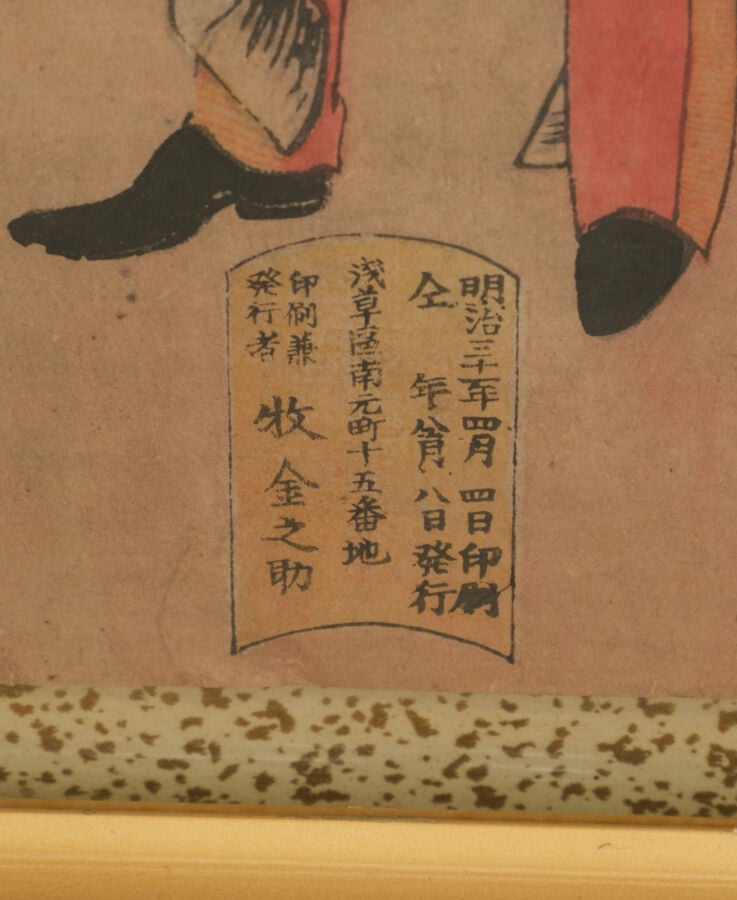 明治三十一年四月四日印刷
仝年仝月八日発行
浅草區南元町十五番地
印刷兼
発行者
牧金之助